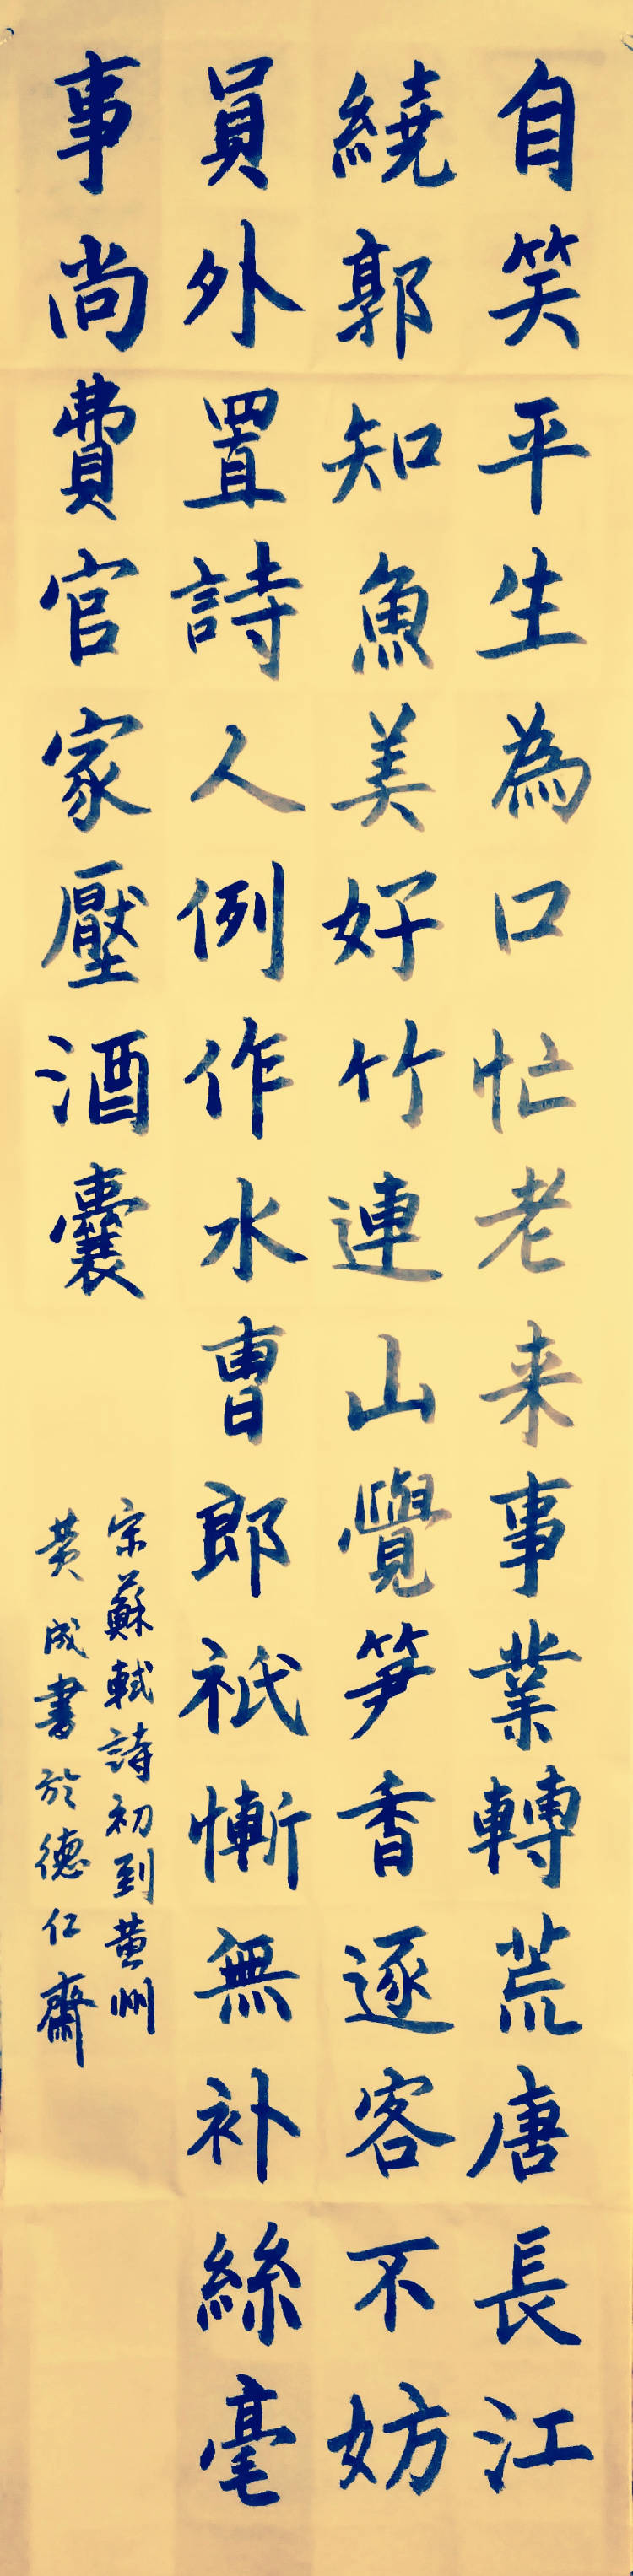 自笑平生為口忙老来事業轉荒唐長江
繞郭知魚美好竹連山覺笋香逐客不妨
員外置詩人例作水曹郎祇慚無补絲毫
事尚費官家壓酒囊
宗蘇軾詩初到黄州
黄成書於德仁齋